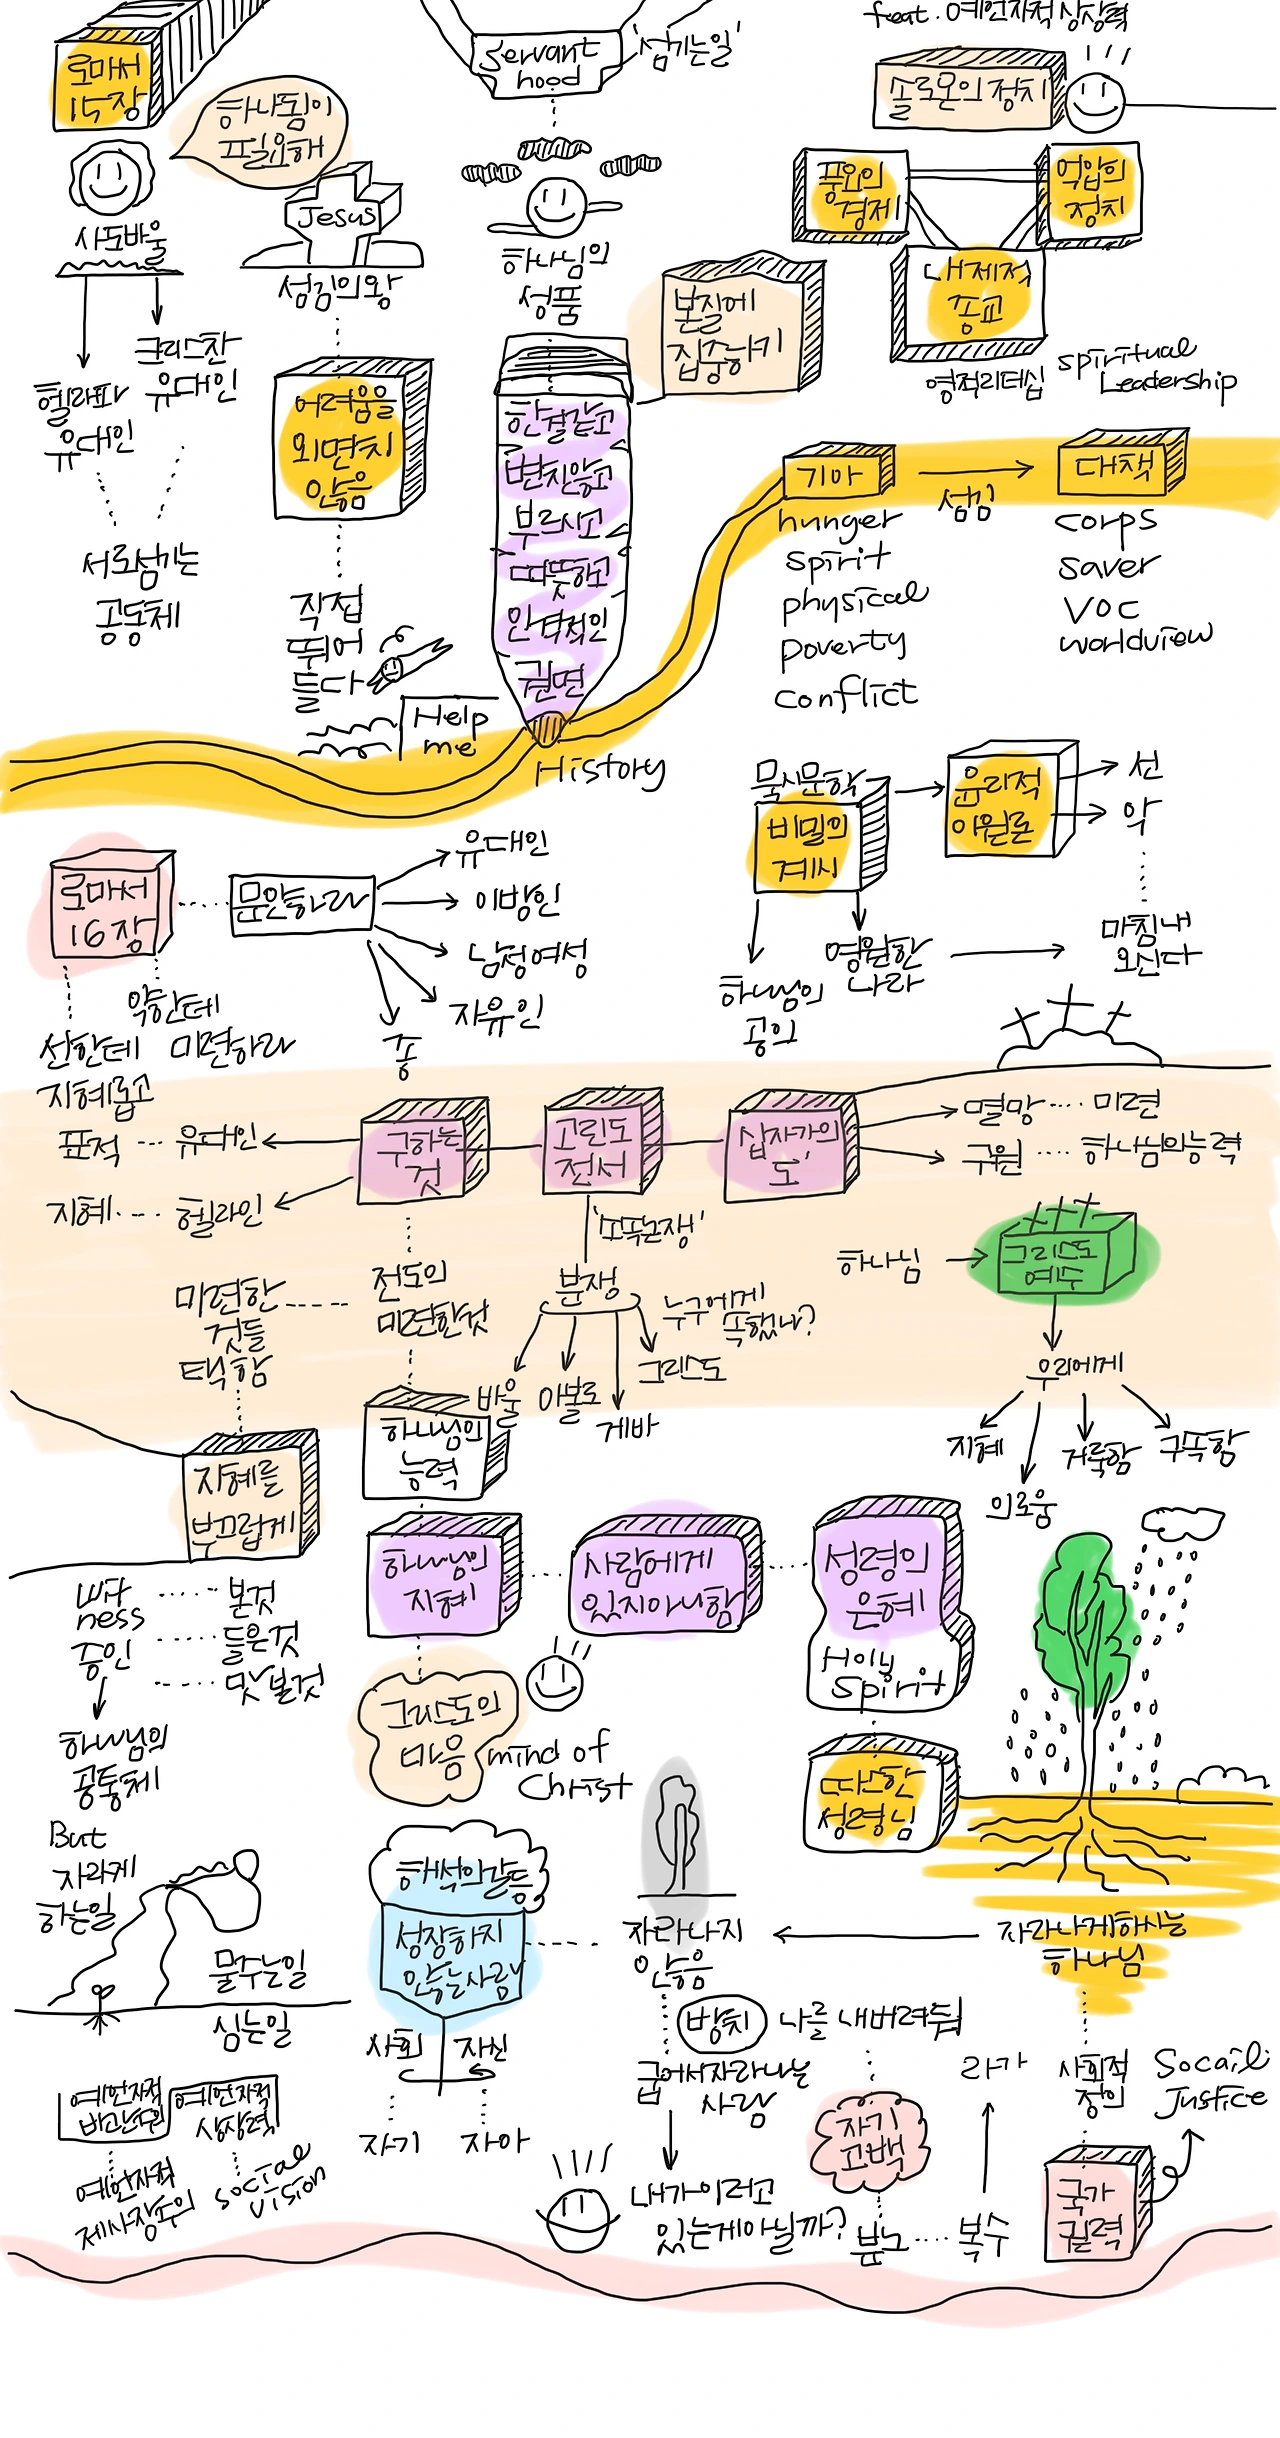 feat. 예언자적 상상력
로마서
15장
하나됨이
필요해
Servant
hood
'섬기는일'
솔로몬의 정치
풍요의
경제
억압의
정치
내제적
종교
영적리더십
spiritual
Leadership
사도바울
헬라파
유대인
크리스찬
유대인
서로섬기는
공동체
Jesus
섬김의왕
어려움을
외면치
않음
직접
뛰어
들다
Help
me
하나님의
성품
한결같고
변치않고
부르시고
따뜻하고
인격적인
권면
본질에
집중하기
History
기아
섬김
대책
hunger
spirit
physical
poverty
conflict
corps
saver
VOC
worldview
묵시문학
비밀의
계시
윤리적
이원론
선
악
하나님의
공의
영원한
나라
마침내
오신다
로마서
16장
문안하라
유대인
이방인
남성여성
자유인
종
선한데
지혜롭고
악한데
미련하라
표적 --- 유대인
지혜 --- 헬라인
구하는
것
고린도
전서
십자가의
도
멸망 ···· 미련
구원 ···· 하나님의능력
분쟁
바울
아볼로
게바
그리스도
누구에게
속했나?
하나님
그리스도
예수
우리에게
지혜
의로움
거룩함
구속함
미련한
것들
택함
전도의
미련한것
하나님의
능력
지혜를
부끄럽게
하나님의
지혜
사람에게
있지아니함
성령의
은혜
Holy
Spirit
wit
ness
증인
본것
들은것
맛본것
하나님의
공동체
그리스도의
마음
mind of
Christ
따스한
성령님
But
자라게
하는일
물주는일
심는일
해석의갈등
성장하지
않는사람
사회
자신
자기
자아
자라나지
않음
자라나게하시는
하나님
방치
나를 내버려둬
사람
내가이러고
있는게아닐까?
자기
고백
분노 ···· 복수
라가
사회적
정의
Socail
Justice
국가
권력
예언자적
예언자적
상상력
예언자적
제사장주의
social
vision